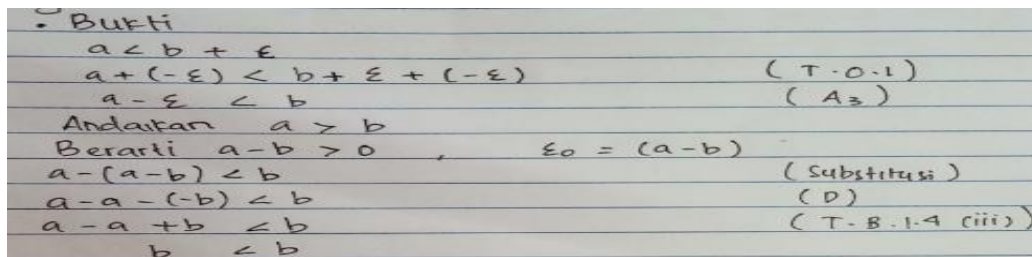 • Bukti
a < b + ε
a + (-ε) < b + ε + (-ε) (T.O.1)
a - ε < b (A3)
Andaikan a > b
Berarti a-b > 0 , ε0 = (a-b)
a-(a-b) < b (Substitusi)
a-a-(-b) < b (D)
a-a+b < b (T.B.1.4 (iii))
b < b